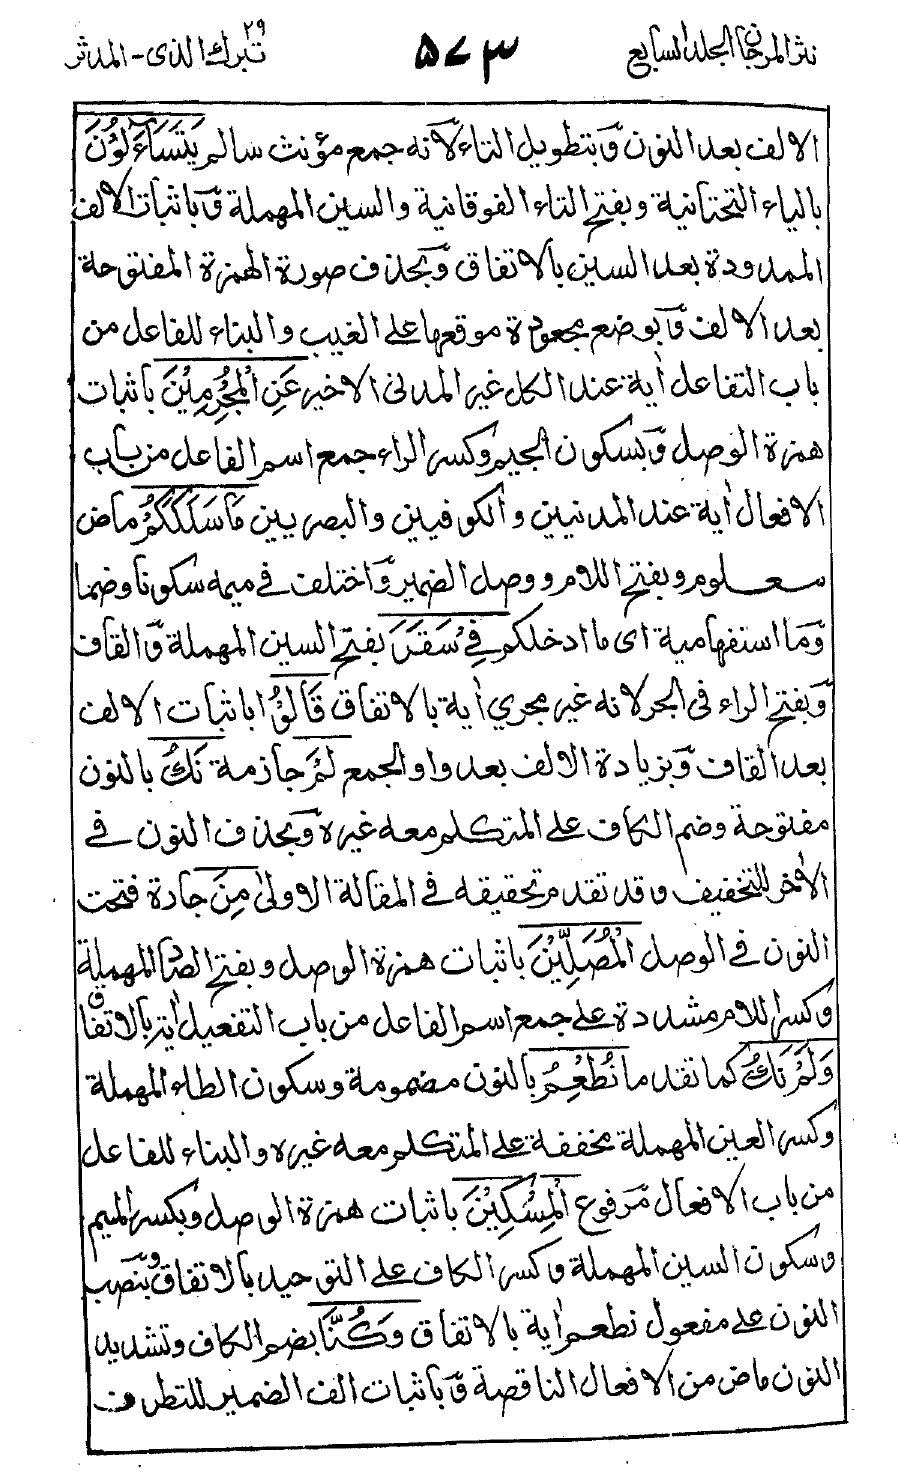 نثر المرجان الجلد السابع
٥٧٣
تبرك الذى ٢٩ - المدثر
الالف بعد النون وَبتطويل التاء لانه جمع مؤنث سالم يَتَسَآءَلُوْنَ
بالياء التحتانية وبفتح التاء الفوقانية والسين المهملة وَباثبات الالف
الممدودة بعد السين بالاتفاق وَبحذف صورة الهمزة المفتوحة
بعد الالف وَبوضع مجعودة موقعها على الغيب والبناء للفاعل من
باب التفاعل اٰية عند الكل غير المدنى الاخير عَنِ الْمُجْرِمِيْنَ باثبات
همزة الوصل وَبسكون الجيم وكسر الراء جمع اسم الفاعل من باب
الافعال اٰية عند المدنيين والكوفيين والبصريين مَاسَلَكَكُمْ ماض
معلوم وبفتح اللام ووصل الضمير وَاختلف فى ميمه سكونا وضما
وَما استفهامية اى ما ادخلكم فِيْ سَقَرَ بفتح السين المهملة وَالقاف
وَبفتح الراء فى الجر لانه غير مجرى اٰية بالاتفاق قَالُوْا باثبات الالف
بعد القاف وَبزيادة الالف بعد واو الجمع لَمْ جازمة نَكُ بالنون
مفتوحة وضم الكاف على المتكلم معه غيره وَبحذف النون فى
الاٰخر للتخفيف وقد تقدم تحقيقه فى المقالة الاولىٰ مِنَ جادة فتحت
النون فى الوصل الْمُصَلِّيْنَ باثبات همزة الوصل وبفتح الصاد المهملة
وكسر اللام مشددة على جمع اسم الفاعل من باب التفعيل اٰية بالاتفاق
وَلَمْ نَكُ كما تقدم نُطْعِمُ بالنون مضمومة وسكون الطاء المهملة
وكسر العين المهملة مخففة على المتكلم معه غيره والبناء للفاعل
من باب الافعال مرفوع الْمِسْكِيْنَ باثبات همزة الوصل وبكسر الميم
وسكون السين المهملة وكسر الكاف على التوحيد بالاتفاق وبنصب
النون على مفعول نطعم اٰية بالاتفاق وَكُنَّا بضم الكاف وتشديد
النون ماض من الافعال الناقصة وَباثبات الف الضمير للتطرف